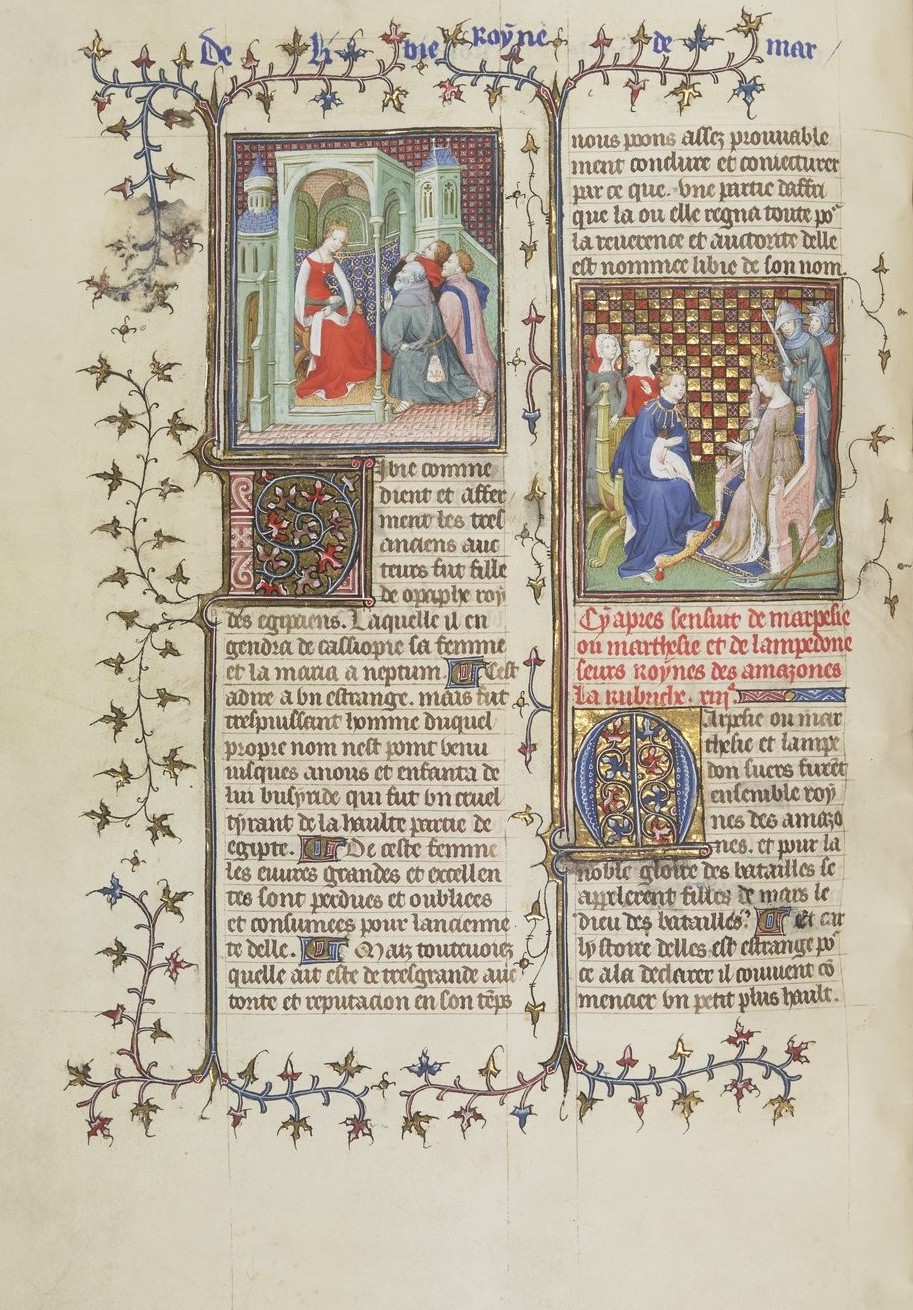 De li bie Royne de mar
Libie comme
dient et affer
ment les tres
anciens auc
teurs fut fille
de opaphe roy
des egipciens. Laquelle il en
gendra de cassiopie sa femme
et la maria a neptum. Cest
adire a vn estrange. mais fut
trespuissant homme duquel
propre nom nest point venu
iusques anous et enfanta de
lui busyride qui fut vn cruel
tyrant de la haulte partie de
egipte. De ceste femme
les euures grandes et excellen
tes sont perdues et oubliees
et consumees pour lancienne
te delle. Maiz touteuoiez
quelle ait este de tresgrande auc
torite et reputacion en son tēps
nous poons assez prouuable
ment conclure et coniecturer
par ce que. vne partie daffri
que la ou elle regna toute poʳ
la reuerence et auctorite delle
est nommee libie de son nom.
Cy apres sensuit de marpesie
ou marthesie et de lampedone
seurs roynes des amazones
La Rubriche. xiijᵉ.
Marpesie ou mar
thesie et lampe
don suers furēt
ensemble roy
nes des amazo
nes. et pour la
noble gloire des batailles se
appelerent filles de mars le
dieu des batailles. Et car
lystoire delles est estrange poʳ
ce ala declarer il conuient cō
mencier vn petit plus hault.